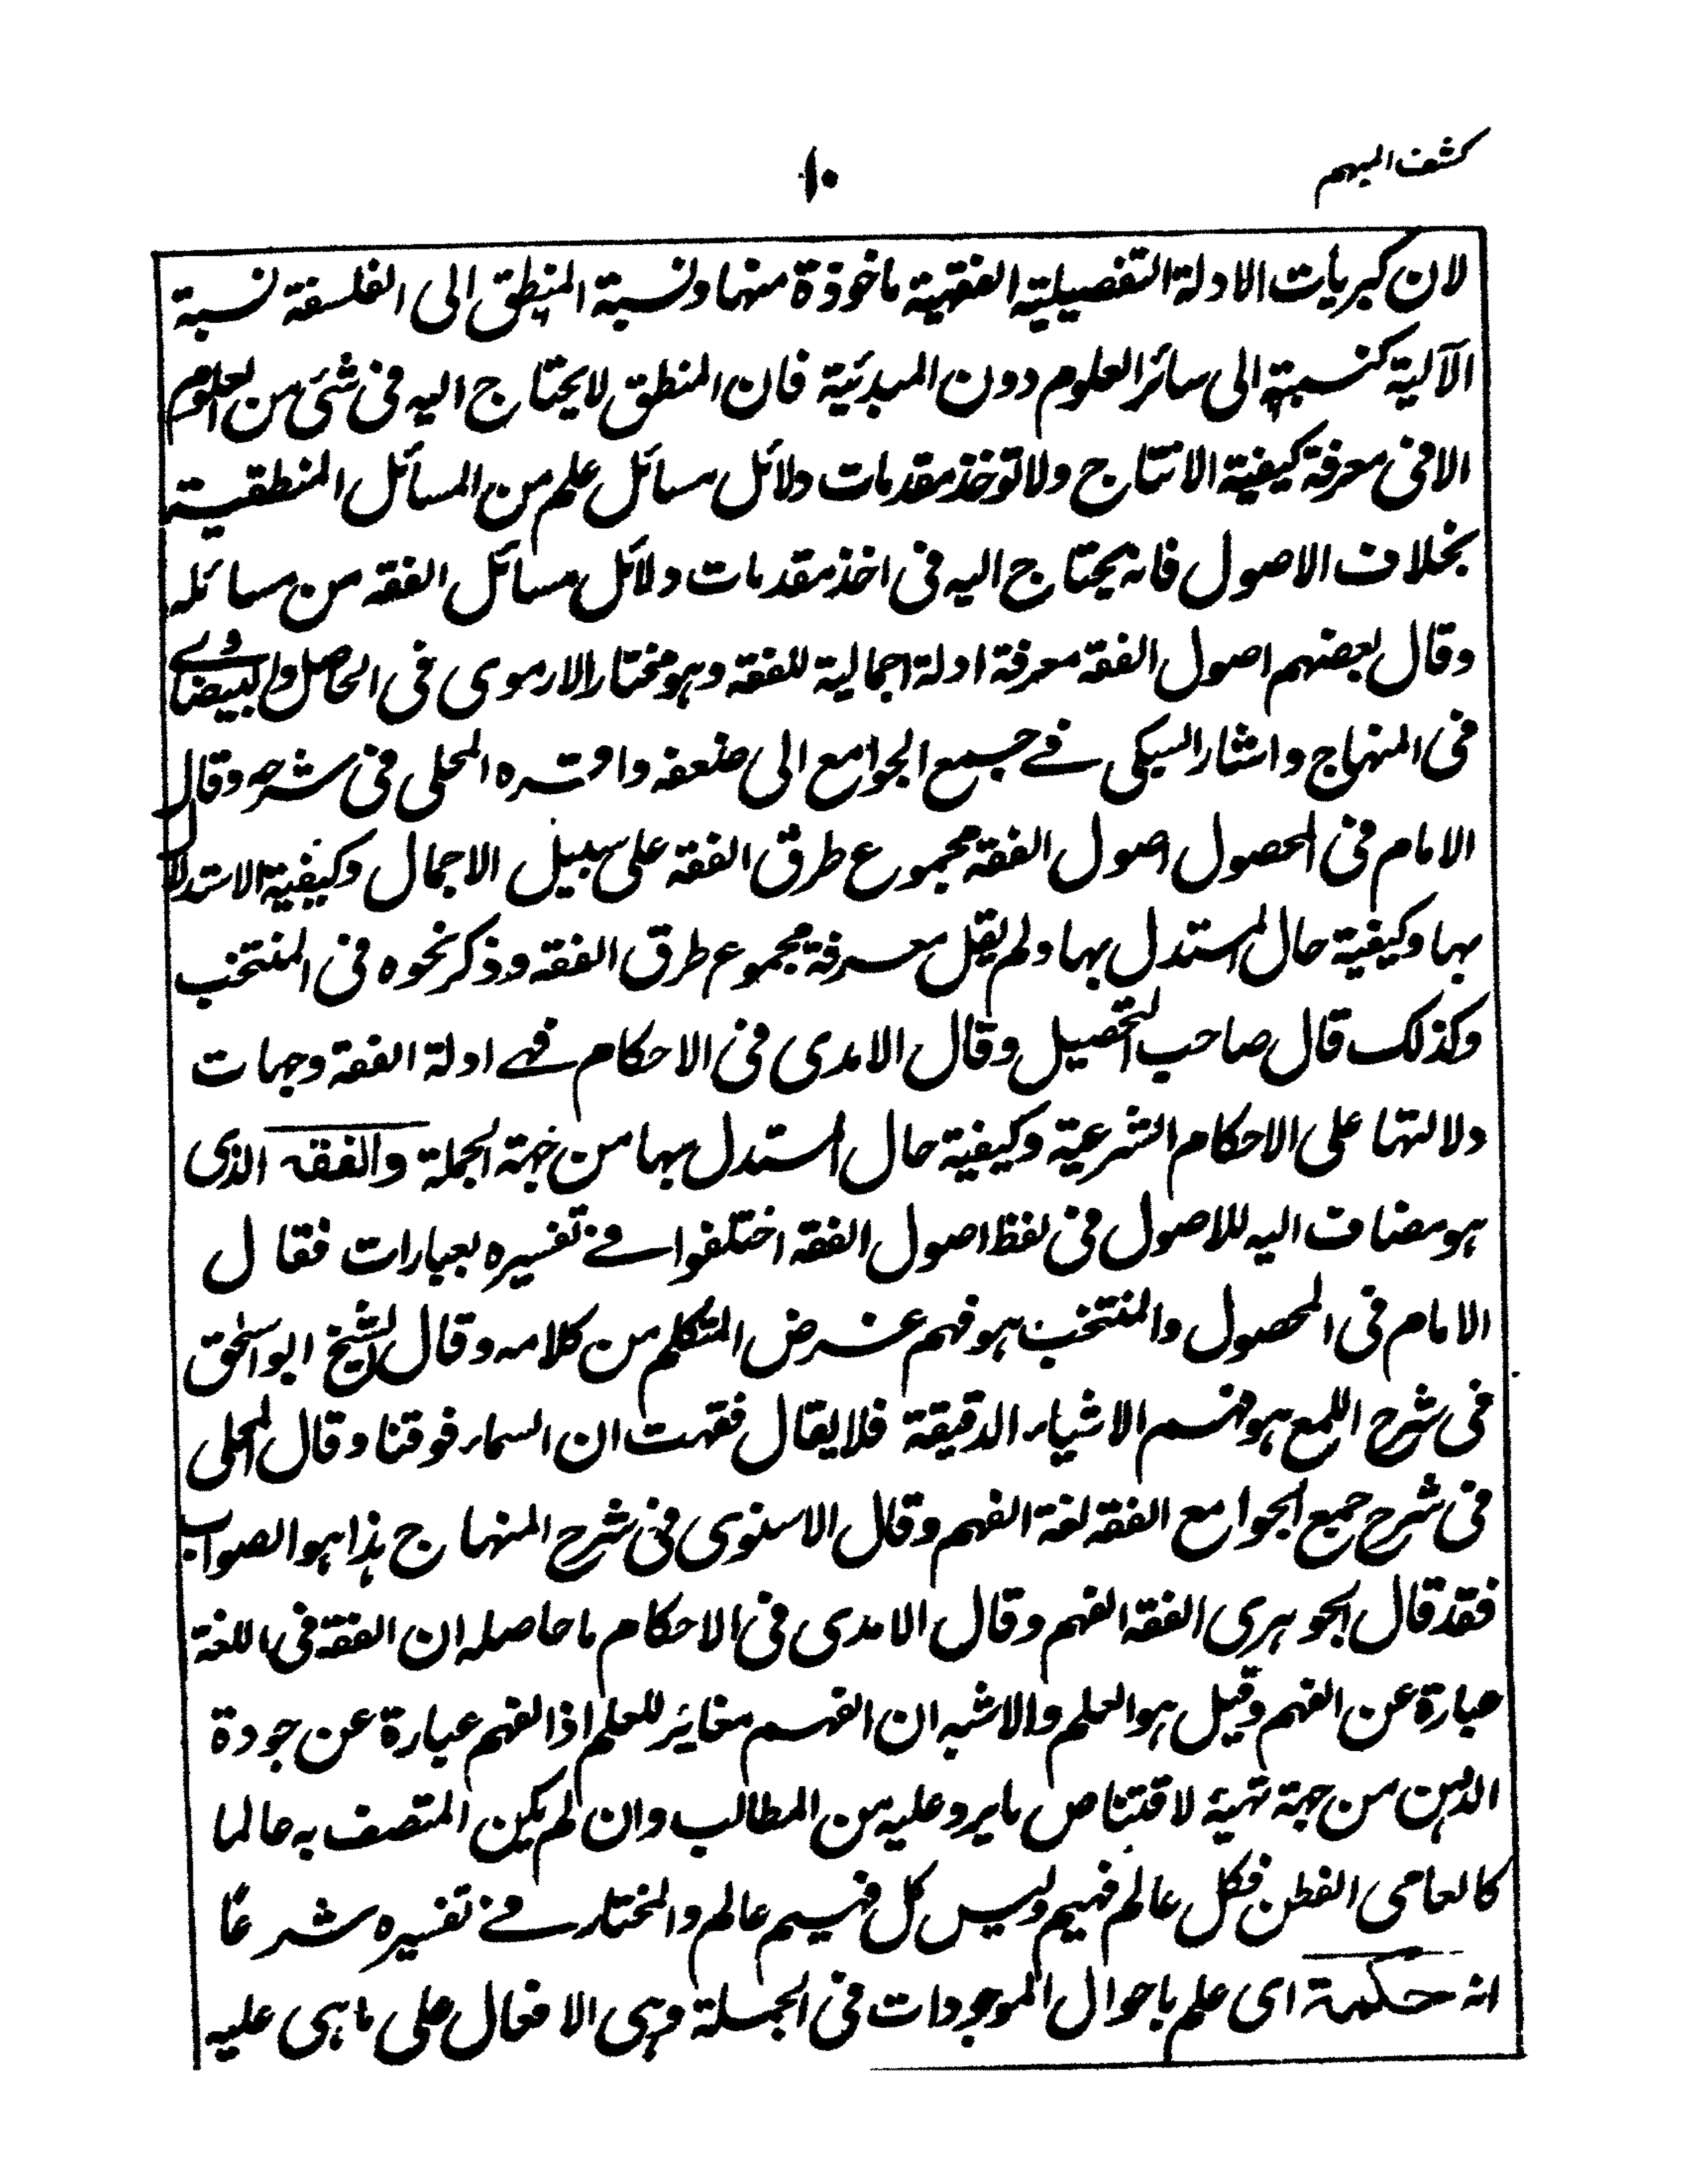 كشف المبهم
١٠
لان كبريات الادلة التفصيلية الفقهية ماخوذة منها ونسبة المنطق الى الفلسفة نسبة
الآلية كنسبته الى سائر العلوم دون المبدئية فان المنطق لا يحتاج اليه فى شئ من العلوم
الا فى معرفة كيفية الانتاج ولا توخذ مقدمات دلائل مسائل علم من المسائل المنطقية
بخلاف الاصول فانه يحتاج اليه فى اخذ مقدمات دلائل مسائل الفقه من مسائله
وقال بعضهم اصول الفقه معرفة ادلة اجمالية للفقه وهو مختار الارموى فى الحاصل والبيضاوى
فى المنهاج واشار السبكى فى جمع الجوامع الى ضعفه واقره المحلى فى شرحه وقال
الامام فى المحصول اصول الفقه مجموع طرق الفقه على سبيل الاجمال وكيفية الاستدلال
بها وكيفية حال المستدل بها ولم يقل معرفة مجموع طرق الفقه وذكر نحوه فى المنتخب
وكذلك قال صاحب التحصيل وقال الامدى فى الاحكام هى ادلة الفقه وجهات
دلالتها على الاحكام الشرعية وكيفية حال المستدل بها من جهة الجملة والفقه الذى
هو مضاف اليه للاصول فى لفظ اصول الفقه اختلفوا فى تفسيره بعبارات فقال
الامام فى المحصول والمنتخب هو فهم غرض المتكلم من كلامه وقال الشيخ ابو اسحق
فى شرح اللمع هو فهم الاشياء الدقيقة فلا يقال فقهت ان السماء فوقنا وقال المحلى
فى شرح جمع الجوامع الفقه لغة الفهم وقال الاسنوى فى شرح المنهاج هذا هو الصواب
فقد قال الجوهرى الفقه الفهم وقال الامدى فى الاحكام ما حاصله ان الفقه فى اللغة
عبارة عن الفهم وقيل هو العلم والاشبه ان الفهم مغاير للعلم اذ الفهم عبارة عن جودة
الذهن من جهة تهيئه لاقتناص ما يرد عليه من المطالب وان لم يكن المتصف به عالما
كالعامى الفطن فكل عالم فهيم وليس كل فهيم عالم والمختار فى تفسيره شرعًا
انه حكمة اى علم باحوال الموجودات فى الجملة وهى الافعال على ما هى عليه